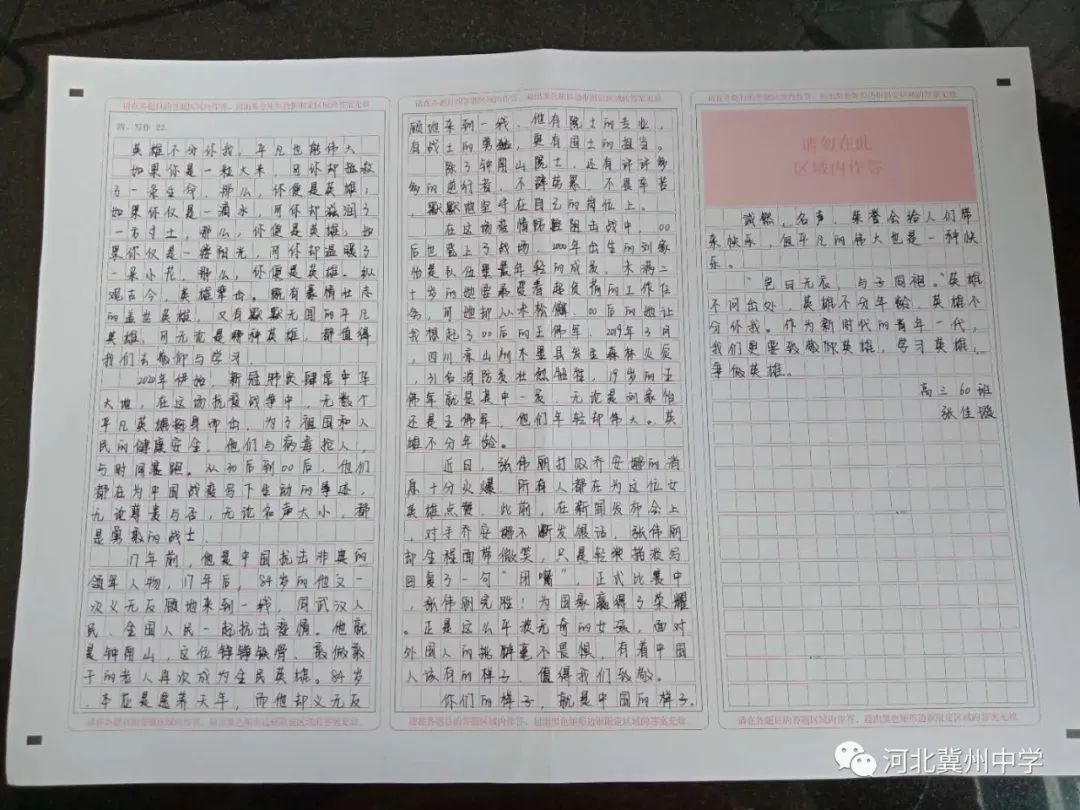 请在各题目的答题区域内作答，超出黑色矩形边框限定区域的答案无效
四、写作 22.
英雄不分你我，平凡也能伟大
如果你是一粒大米，可你却拯救
了一条生命，那么，你便是英雄；
如果你仅是一滴水，可你却滋润了
一方寸土，那么，你便是英雄；如
果你仅是一缕阳光，可你却温暖了
一朵小花，那么，你便是英雄。纵
观古今，英雄辈出。既有豪情壮志
的盖世英雄，又有默默无闻的平凡
英雄，可无论是哪种英雄，都值得
我们去敬仰与学习。
2020年伊始，新冠肺炎肆虐中华
大地，在这场抗疫战争中，无数个
平凡英雄挺身而出，为了祖国和人
民的健康安全，他们与病毒抢人，
与时间赛跑。从30后到00后，他们
都在为中国战疫写下生动的事迹，
无论尊贵与否，无论名声大小，都
是勇敢的战士。
17年前，他是中国抗击非典的
领军人物，17年后，84岁的他又一
次义无反顾地来到一线，同武汉人
民、全国人民一起抗击疫情。他就
是钟南山，这位铮铮铁骨、敢做敢
干的老人再次成为全民英雄。84岁
，本应是颐养天年，而他却义无反
请在各题目的答题区域内作答，超出黑色矩形边框限定区域的答案无效
请在各题目的答题区域内作答，超出黑色矩形边框限定区域的答案无效
顾地来到一线，他有院士的专业，
有战士的勇猛，更有国士的担当。
除了钟南山院士，还有许许多
多的逆行者，不辞劳累，不畏辛苦
，默默地坚守在自己的岗位上。
在这场疫情防控阻击战中，00
后也登上了战场，2000年出生的刘家
怡是队伍里最年轻的成员，未满二
十岁的她要承受着超负荷的工作任
务，可她却从未松懈，00后的她让
我想起了00后的王佛军，2019年3月
，四川凉山州木里县发生森林火灾
，31名消防员壮烈牺牲，19岁的王
佛军就是其中一员，无论是刘家怡
还是王佛军，他们年轻却伟大。英
雄不分年龄。
近日，张伟丽打败乔安娜的消
息十分火爆，所有人都在为这位女
英雄点赞，此前，在新闻发布会上
，对手乔安娜不断发狠话，张伟丽
却全程面带微笑，只是轻描淡写
回复了一句“闭嘴”，正式比赛中
，张伟丽完胜！为国家赢得了荣耀
。正是这么平淡无奇的女孩，面对
外国人的挑衅毫不畏惧，有着中国
人该有的样子，值得我们致敬。
你们的样子，就是中国的样子。
请在各题目的答题区域内作答，超出黑色矩形边框限定区域的答案无效
请在各题目的答题区域内作答，超出黑色矩形边框限定区域的答案无效
请勿在此
区域内作答
诚然，名声、荣誉会给人们带
来快乐，但平凡的伟大也是一种快
乐。
“岂曰无衣，与子同袍。”英雄
不问出处，英雄不分年龄，英雄不
分你我。作为新时代的青年一代，
我们更要致敬你英雄，学习英雄，
争做英雄。
高三 60班
张佳璇
请在各题目的答题区域内作答，超出黑色矩形边框限定区域的答案无效
河北冀州中学